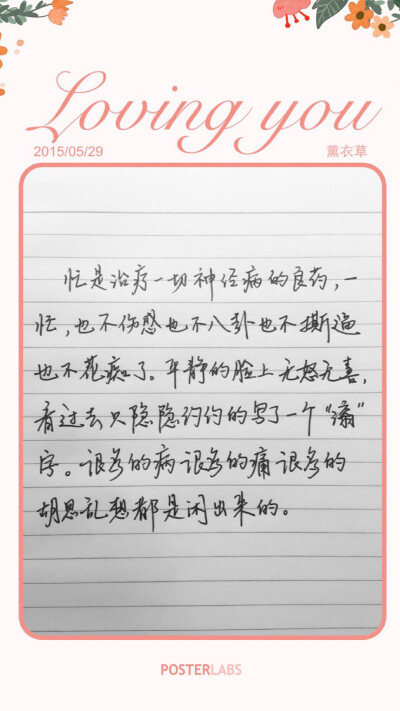 Loving you
2015/05/29 薰衣草
忙是治疗一切神经病的良药,一
忙,也不伤愁也不八卦也不撕逼
也不花痴了。平静的脸上无怒无喜,
看过去只隐隐约约的写了一个“滚”
字。很多的病很多的痛很多的
胡思乱想都是闲出来的。
POSTERLABS